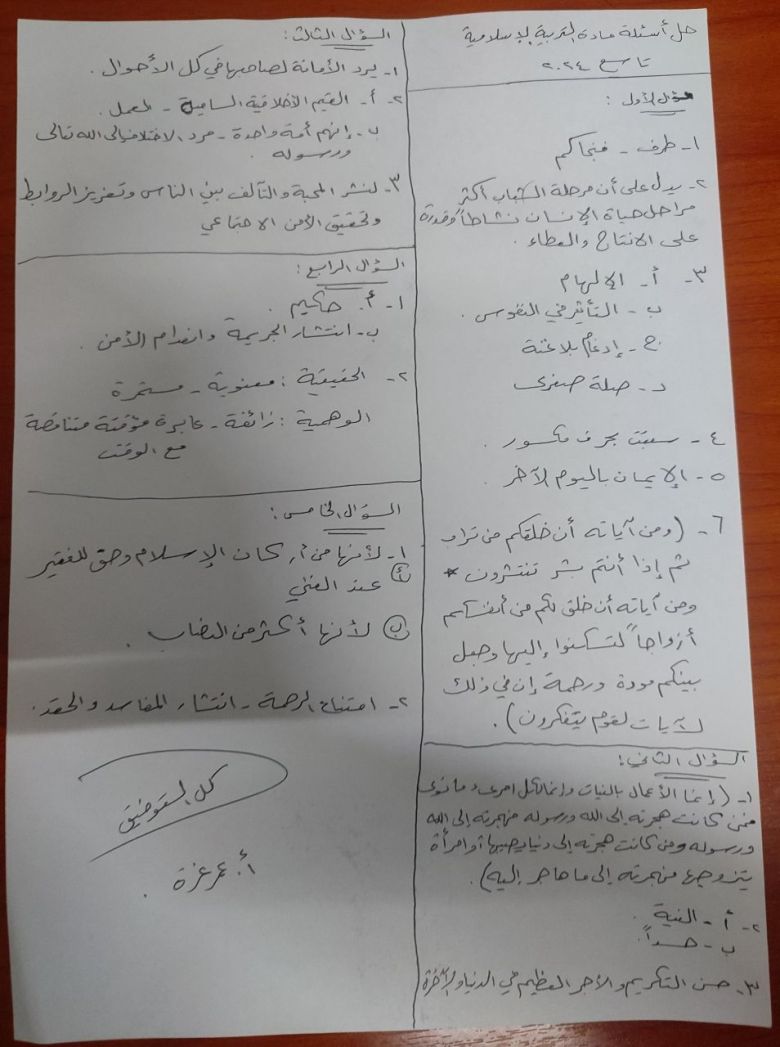 حل أسئلة مادة التربية الإسلامية
تاسع ٢٠٢٤
سؤال الأول :
١- طرف - فنجاكم
٢- يدل على أن مرحلة الشباب أكثر
مراحل حياة الإنسان نشاطاً وقدرة
على الانتاج والعطاء .
٣- أ- الإلهام
ب - التأثير في النفوس .
ج - إدغام بلا غنة
د - صلة صغرى
٤ - سبقت بحرف مكسور .
٥ - الإيمان باليوم الآخر .
٦ - (ومن آياته أن خلقكم من تراب
ثم إذا أنتم بشر تنتشرون *
ومن آياته أن خلق لكم من أنفسكم
أزواجاً لتسكنوا إليها وجعل
بينكم مودة ورحمة إن في ذلك
لآيات لقوم يتفكرون) .
السؤال الثاني :
١- (إنما الأعمال بالنيات وإنما لكل امرىء ما نوى
فمن كانت هجرته إلى الله ورسوله فهجرته إلى الله
ورسوله ومن كانت هجرته إلى دنيا يصيبها أو امرأة
يتزوجها فهجرته إلى ما هاجر إليه) .
٢- أ - النية .
ب - حسداً .
٣- حسن التكريم والأجر العظيم في الدنيا والآخرة
السؤال الثالث :
١- يرد الأمانة لصاحبها في كل الأحوال .
٢- أ- القيم الأخلاقية السامية - العمل .
ب - إنهم أمة واحدة - مرد الاختلاف إلى الله تعالى
ورسوله .
٣- لنشر المحبة والتآلف بين الناس وتعزيز الروابط
وتحقيق الأمن الاجتماعي
السؤال الرابع :
١- أ. حكيم .
ب- انتشار الجريمة وانعدام الأمن .
٢- الحقيقية : معنوية - مستمرة
الوهمية : زائفة - عابرة مؤقتة متناقصة
مع الوقت
السؤال الخامس :
١- أ لأنها من أركان الإسلام وحق للفقير
عند الغني
ب لأنها أكثر من النصاب .
٢- امتناع الرحمة - انتشار المفاسد والحقد .
كل التوفيق
أ. عمر عزة .